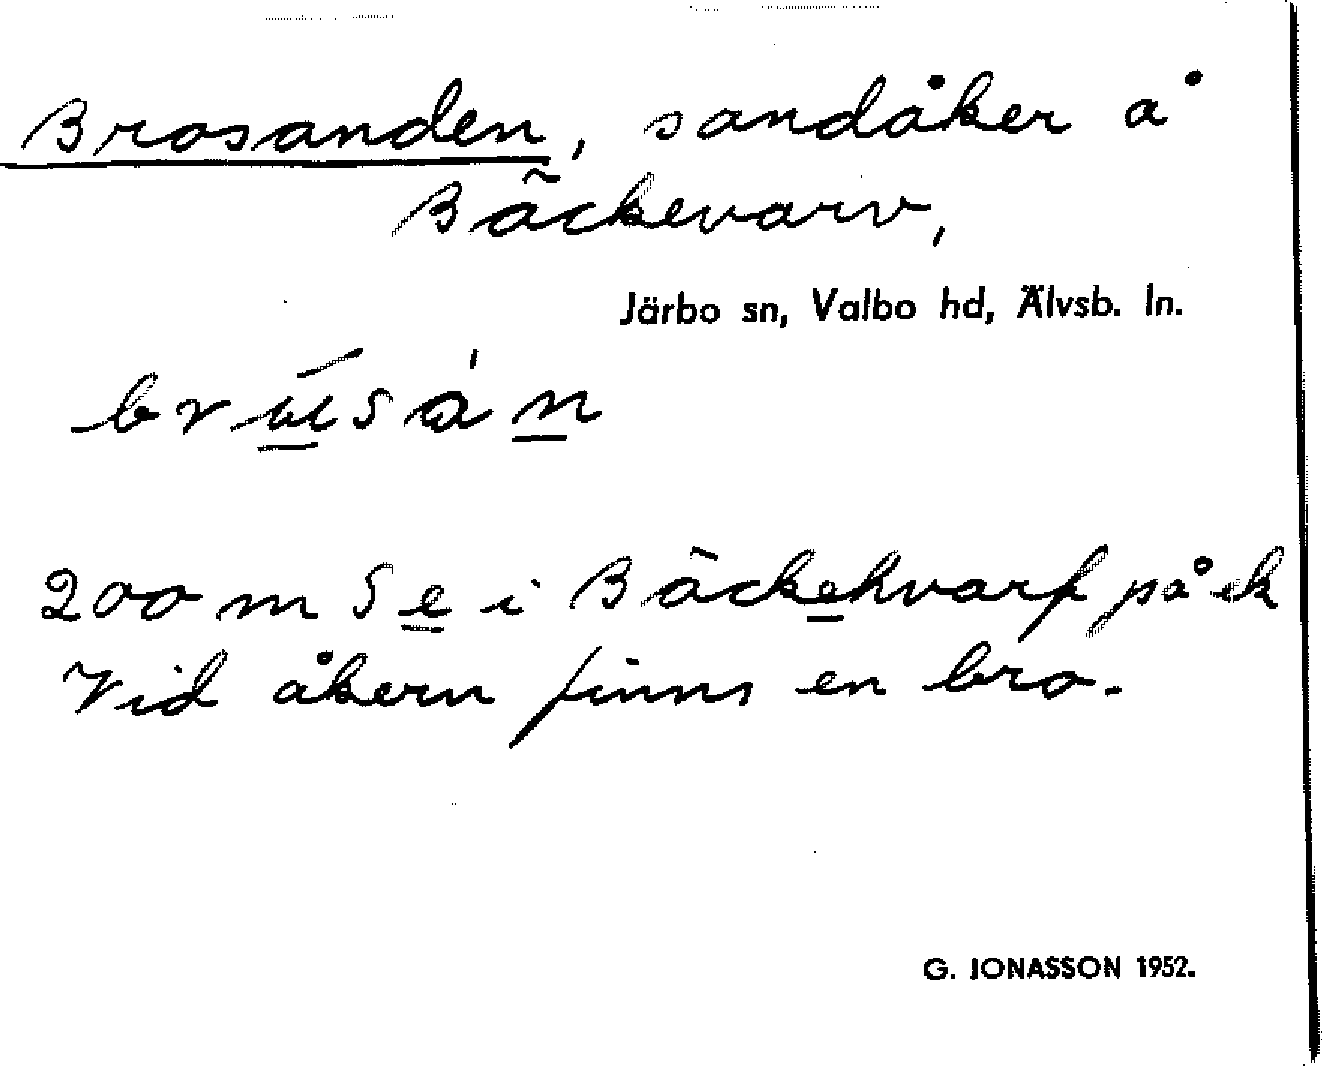 Brosanden, sandåker å
Bäckevarv,
Järbo sn, Valbo hd, Älvsb. ln.
brúsán
200 m S e i Bäckehvarf på ek
Vid åkern finns en bro.
G. JONASSON 1952.